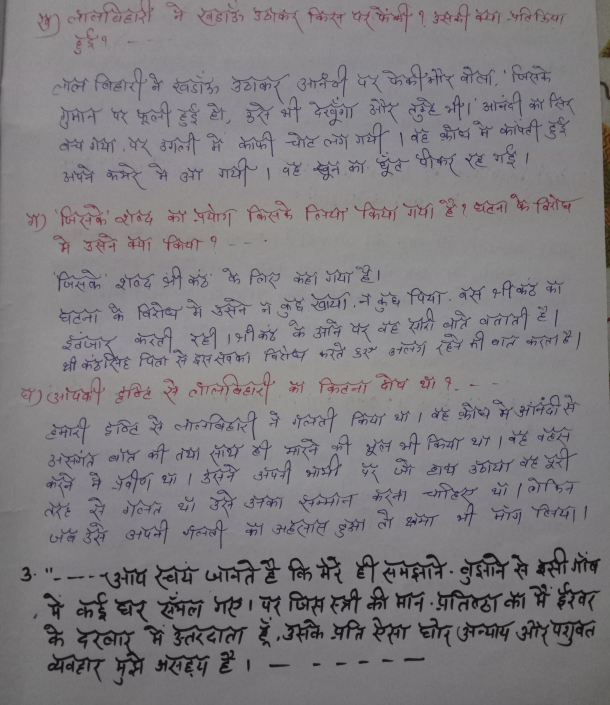 ख) लालबिहारी ने खडाऊँ उठाकर किस पर फेंकी ? उसकी क्या प्रतिक्रिया
हुई ? - - -
लाल बिहारी ने खडाऊँ उठाकर आनंदी पर फेंकी और बोला, 'जिसके
गुमान पर फूली हुई हो, उसे भी देखूँगा और तुम्हें भी।' आनंदी का सिर
बच गया, पर उंगली में काफी चोट लग गयी। वह क्रोध में कांपती हुई
अपने कमरे में आ गयी। वह खून का घूँट पीकर रह गई।
ग) 'जिसके' शब्द का प्रयोग किसके लिया किया गया है ? घटना के विरोध
में उसने क्या किया ? - - -
'जिसके' शब्द श्री कंठ के लिए कहा गया है।
घटना के विरोध में उसने न कुछ खाया, न कुछ पिया. बस श्री कंठ का
इंतजार करती रही। श्री कंठ के आने पर वह सारी बाते बताती है।
श्री कंठसिंह पिता से इस सबका विरोध करते हुए अलग रहने की बात करता है।
घ) आपकी दृष्टि से लालबिहारी का कितना दोष था ? - - -
हमारी दृष्टि से लालबिहारी ने गलती किया था। वह क्रोध में आनंदी से
असंगत बात की तथा साथ ही मारने की भूल भी किया था। वह बहस
करने में प्रवीण था। उसने अपनी भाभी पर जो हाथ उठाया वह पूरी
तरह से गलत था उसे उनका सम्मान करना चाहिए था। लेकिन
जब उसे अपनी गलती का अहसास हुआ तो क्षमा भी माँग लिया।
3. "- - - - आप स्वयं जानते है कि मेरे ही समझाने - बुझाने से इसी गांव
में कई घर सँभल गए। पर जिस स्त्री की मान - प्रतिष्ठा का मैं ईश्वर
के दरबार में उतरदाता हूँ, उसके प्रति ऐसा घोर अन्याय और पशुवत
व्यवहार मुझे असह्य है। - - - - - -